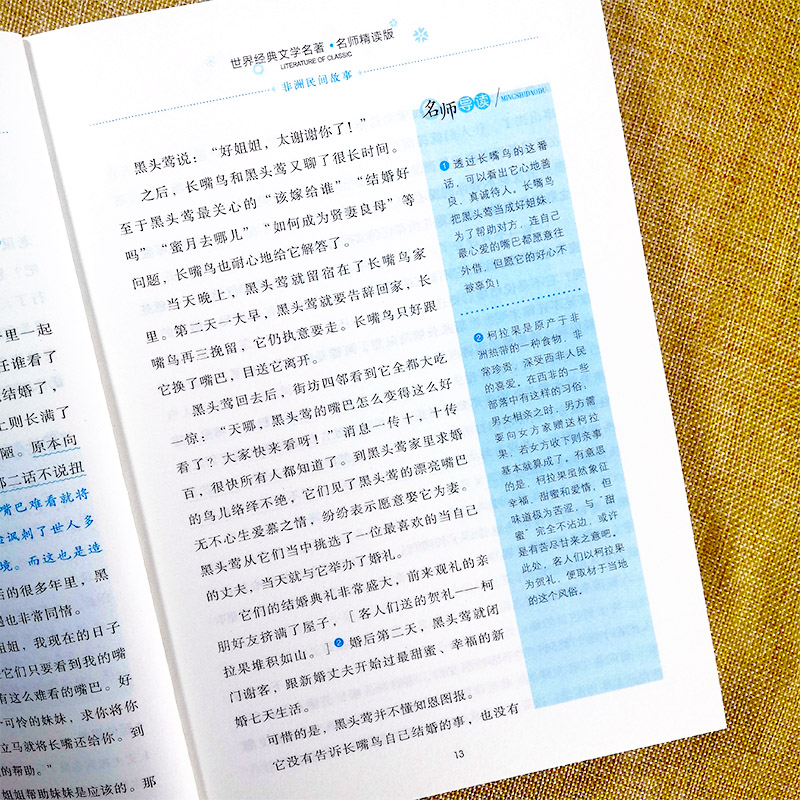 里一起
任谁看了
结婚了，
则长满了
陋。原本向
二话不说扭
嘴巴难看就将
讽刺了世人多
境。而这也是造
后的很多年里，黑
也非常同情。
姐姐，我现在的日子
它们只要看到我的嘴
有这么难看的嘴巴。好
可怜的妹妹，求你将你
立马就将长嘴还给你。到
的帮助。”
姐姐帮助妹妹是应该的。那
世界经典文学名著·名师精读版
LITERATURE OF CLASSIC
非洲民间故事
黑头莺说：“好姐姐，太谢谢你了！”
之后，长嘴鸟和黑头莺又聊了很长时间。
至于黑头莺最关心的“该嫁给谁”“结婚好
吗”“蜜月去哪儿”“如何成为贤妻良母”等
问题，长嘴鸟也耐心地给它解答了。
当天晚上，黑头莺就留宿在了长嘴鸟家
里。第二天一大早，黑头莺就要告辞回家，长
嘴鸟再三挽留，它仍执意要走。长嘴鸟只好跟
它换了嘴巴，目送它离开。
黑头莺回去后，街坊四邻看到它全都大吃
一惊：“天哪，黑头莺的嘴巴怎么变得这么好
看了？大家快来看呀！”消息一传十，十传
百，很快所有人都知道了。到黑头莺家里求婚
的鸟儿络绎不绝，它们见了黑头莺的漂亮嘴巴
无不心生爱慕之情，纷纷表示愿意娶它为妻。
黑头莺从它们当中挑选了一位最喜欢的当自己
的丈夫，当天就与它举办了婚礼。
它们的结婚典礼非常盛大，前来观礼的亲
朋好友挤满了屋子，［客人们送的贺礼——柯
拉果堆积如山。］❷婚后第二天，黑头莺就闭
门谢客，跟新婚丈夫开始过最甜蜜、幸福的新
婚七天生活。
可惜的是，黑头莺并不懂知恩图报。
它没有告诉长嘴鸟自己结婚的事，也没有
13
名师导读
MINGSHIDAODU
❶透过长嘴鸟的这番
话，可以看出它心地善
良，真诚待人。长嘴鸟
把黑头莺当成好姐妹，
为了帮助对方，连自己
最心爱的嘴巴都愿意往
外借，但愿它的好心不
被辜负！
❷柯拉果是原产于非
洲热带的一种食物，非
常珍贵，深受西非人民
的喜爱。在西非的一些
部落中有这样的习俗：
男女相亲之时，男方需
要向女方家赠送柯拉
果，若女方收下则亲事
基本就算成了，有意思
的是，柯拉果虽然象征
幸福、甜蜜和爱情，但
味道极为苦涩，与“甜
蜜”完全不沾边，或许
是有苦尽甘来之意吧。
此处，客人们以柯拉果
为贺礼，便取材于当地
的这个风俗。